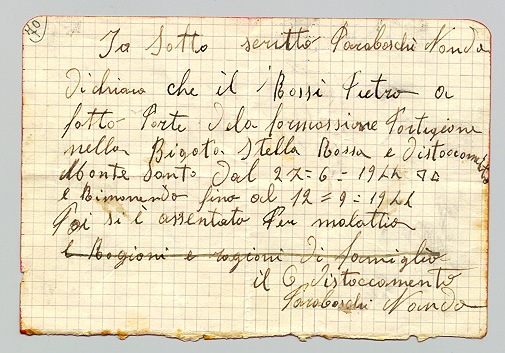 70
Io Sotto scritto Paraboschi Nando
dichiaro che il Rossi Pietro a
fatto Parte dela formassione Partigiane
nella Bigata Stella Rossa e distaccamento
Monte Santo dal 27=6=1944
e Rimanendo fino al 12=9=1944
Poi si è assentato Per malattia
e Ragioni e ragioni di famiglia
il C distaccamento
Paraboschi Nando